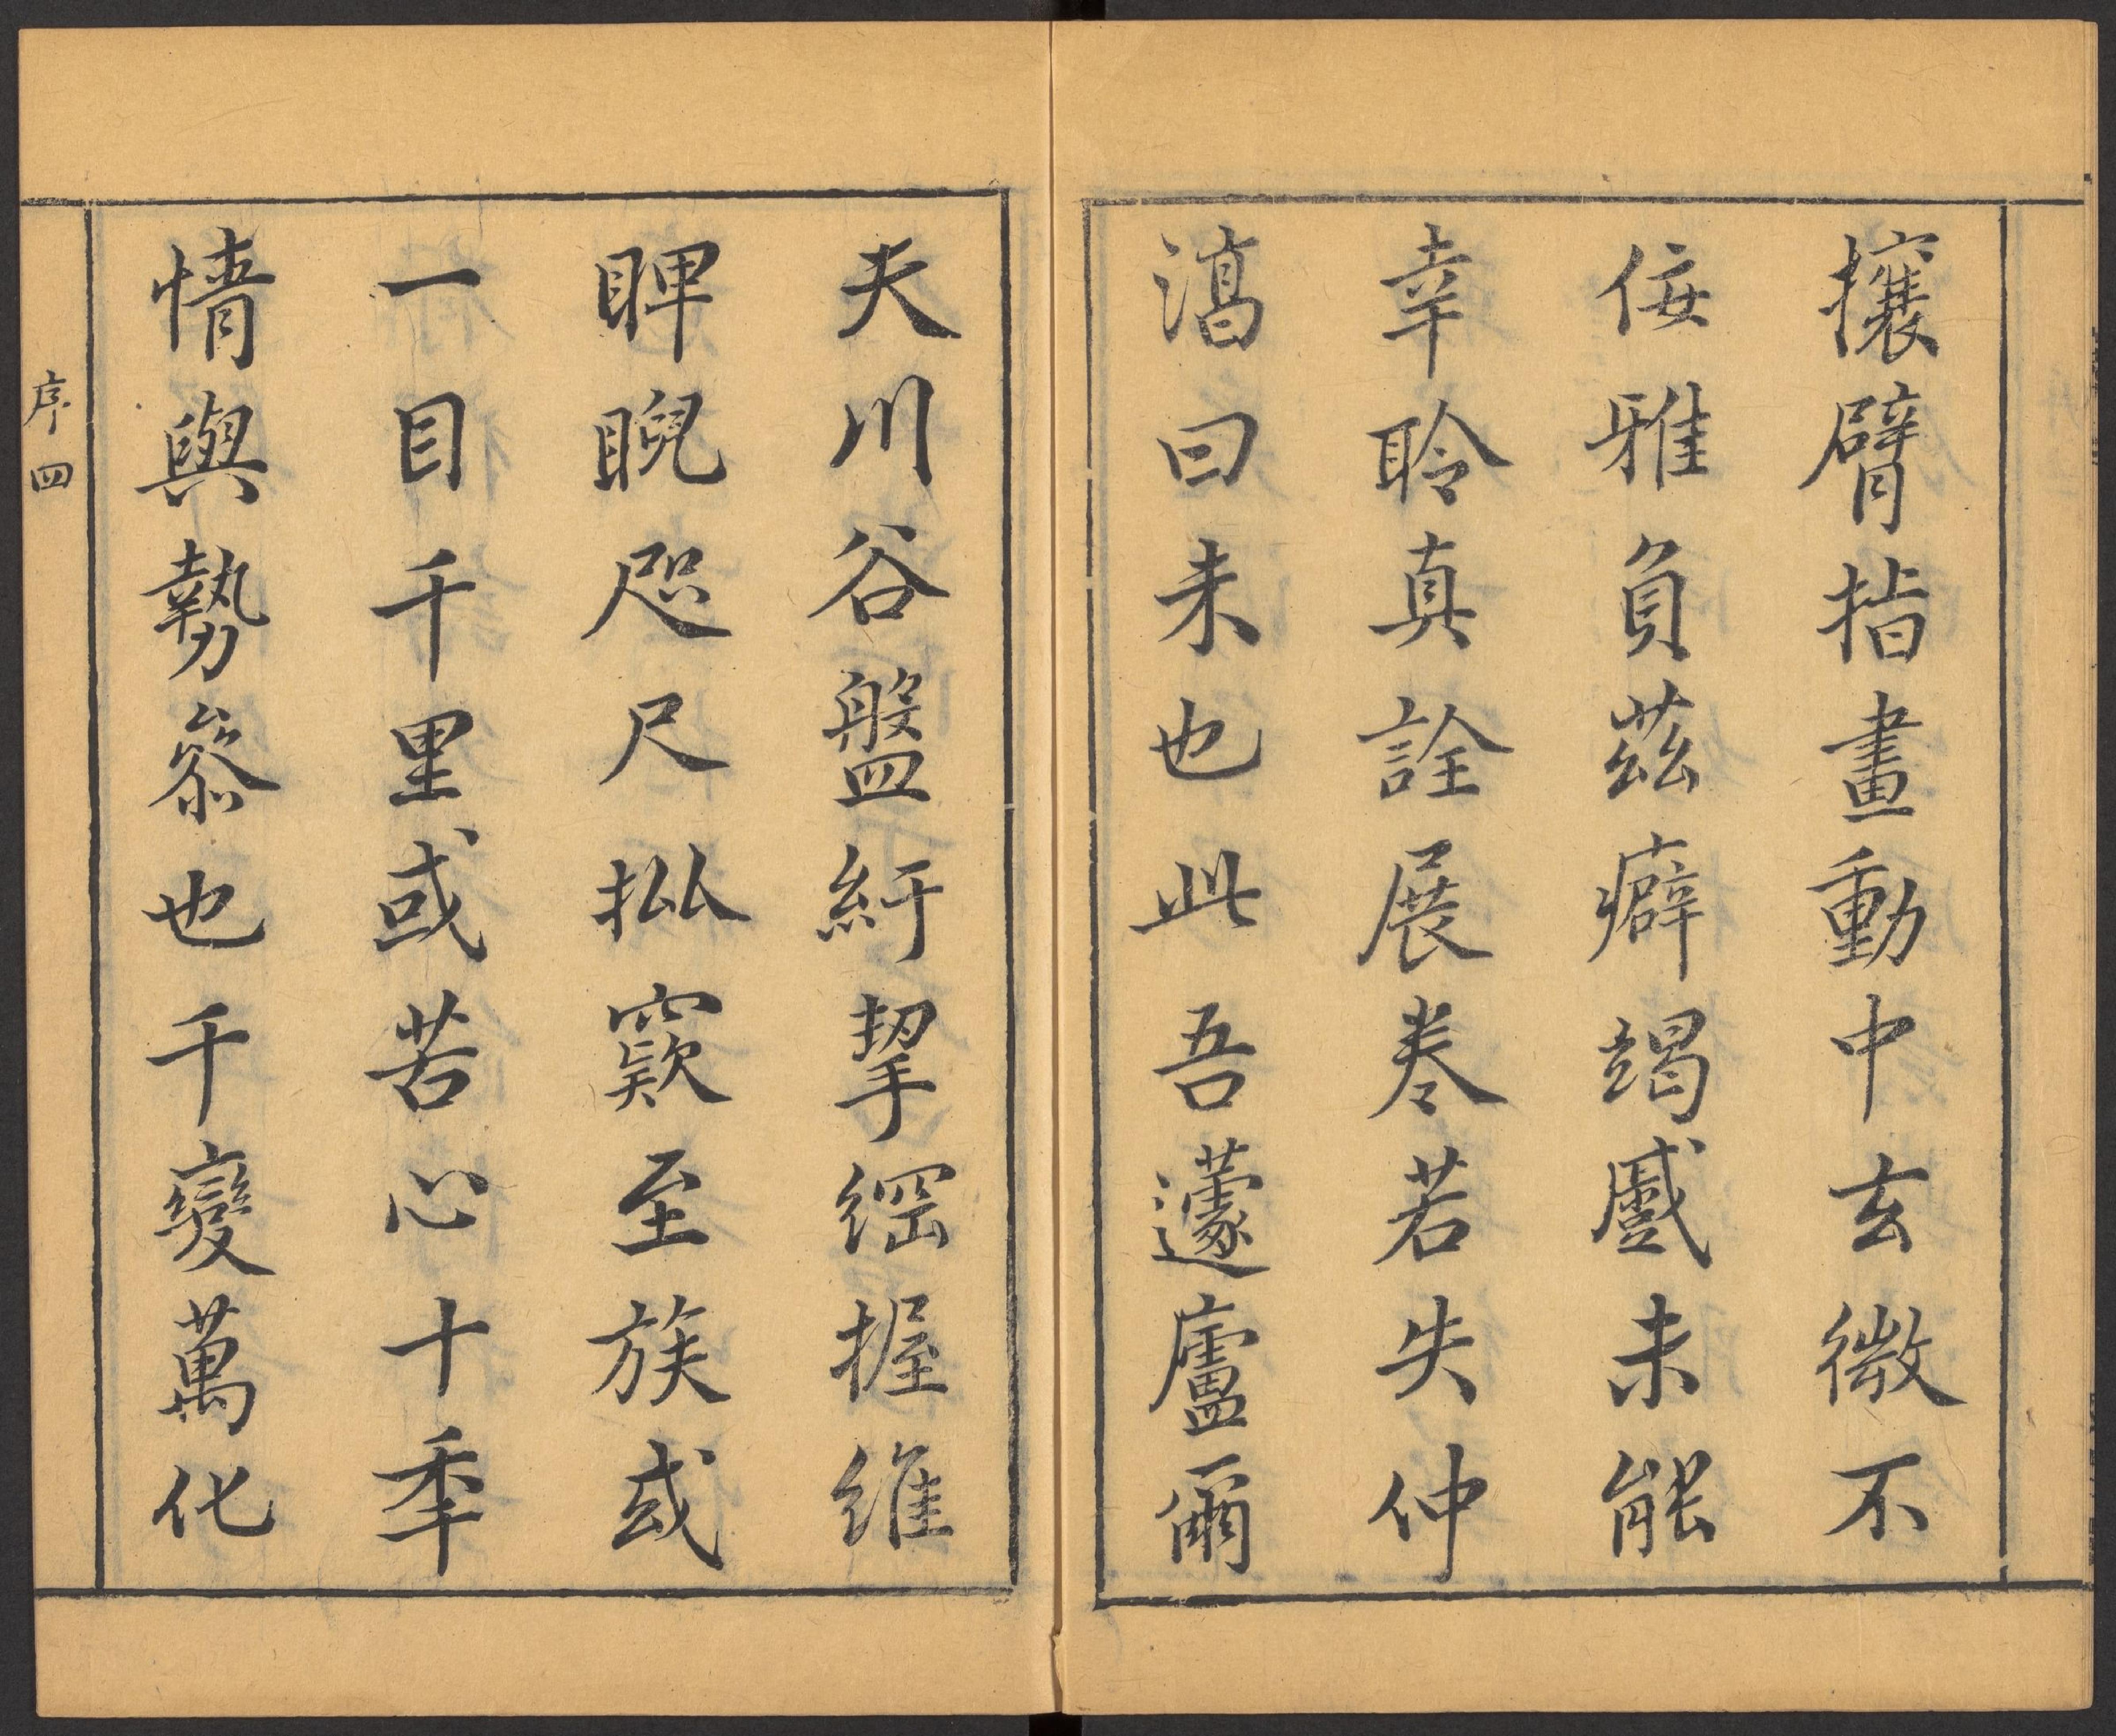 攘臂指畫動中玄微不
佞雅負茲癖竭蹙未能
幸聆真詮展卷若失仲
滈曰未也此吾蘧廬爾
夫川谷盤紆挈綱握維
睥睨咫尺批窾至族或
一目千里或苦心十季
情與勢叅也千變萬化
序 四